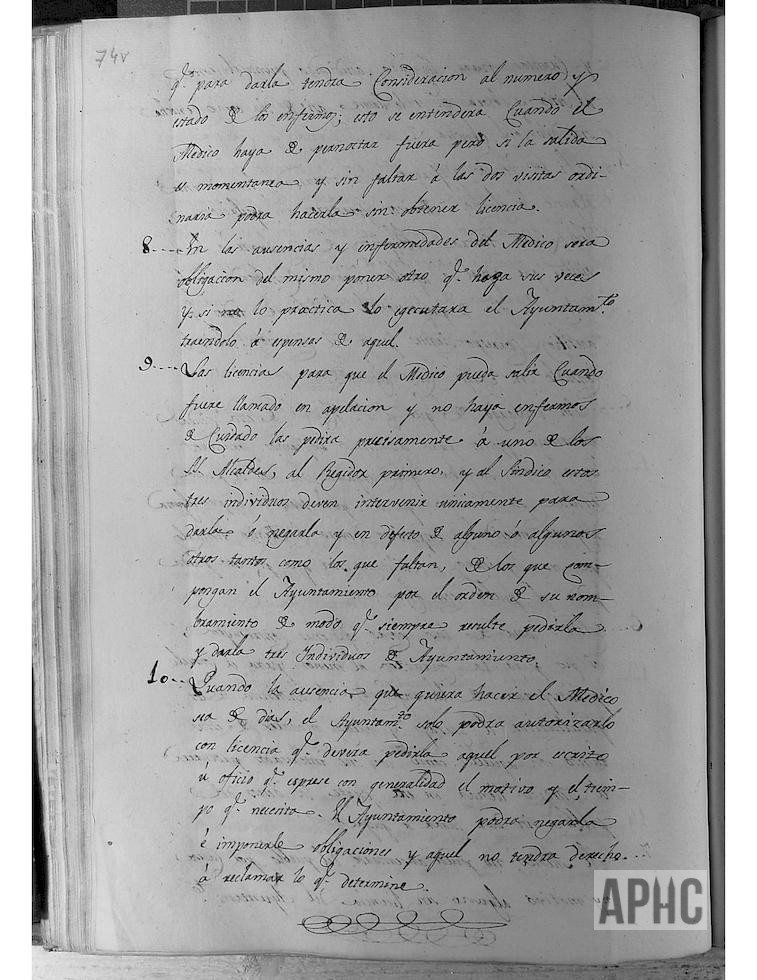 74v
q.e para darla tendra Consideracion al numero y
estado de los enfermos; esto se entendera Cuando el
Medico haya de pernoctar fuera pero si la salida
es momentanea y sin faltar á las dos visitas ordi-
naria podra hacerla sin obtener licencia.
8.... En las ausencias y enfermedades del Medico sera
obligacion del mismo poner otro q.e haga sus veces
y si no lo practica lo egecutara el Ayuntam.to
trayendolo á espensas de aquel.
9.... Las licencias para que el Medico pueda salir Cuando
fuere llamado en apelacion y no haya enfermos
de Cuidado las pedira precisamente á uno de los
SS. Alcaldes, al Regidor primero, y al Sindico estos
tres individuos deven intervenir unicamente para
darla ó negarla y en defecto de alguno ó algunos
otros tantos como los que faltan, de los que com-
pongan el Ayuntamiento por el orden de su nom-
bramiento de modo q.e siempre resulte pedirla
y darla tres Individuos de Ayuntamiento.
10.. Quando la ausencia que quiera hacer el Medico
sea de dias, el Ayuntam.to solo podra autorizarlo
con licencia q.e devera pedirla aquel por escrito
ú oficio q.e esprese con generalidad el motivo y el tiem-
po q.e necesita. El Ayuntamiento podra negarla
é imponerle obligaciones y aquel no tendra derecho
á reclamar lo q.e determine.
APHC